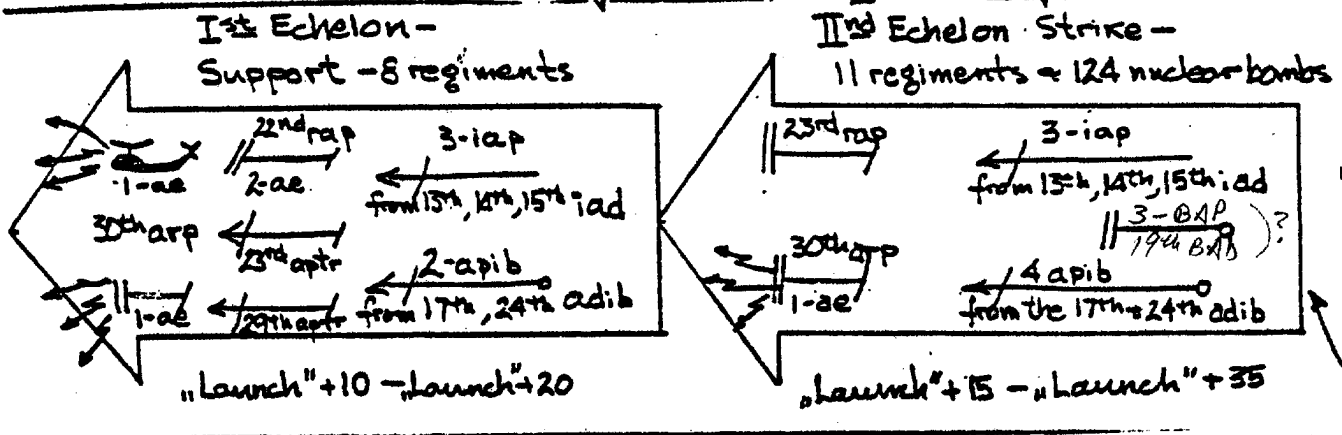 Ist Echelon-
Support - 8 regiments
22nd rap
3-iap
1-ae
2-ae
from 13th, 14th, 15th iad
30th arp
23rd aptr
2-apib
1-ae
29th aptr
from 17th, 24th adib
„Launch"+10 - „Launch"+20
IInd Echelon Strike -
11 regiments = 124 nuclear bombs
23rd rap
3-iap
from 13th, 14th, 15th iad
3-BAP
19th BAD ) ?
30th arp
4 apib
1-ae
from the 17th + 24th adib
„Launch" + 15 - „Launch" + 35